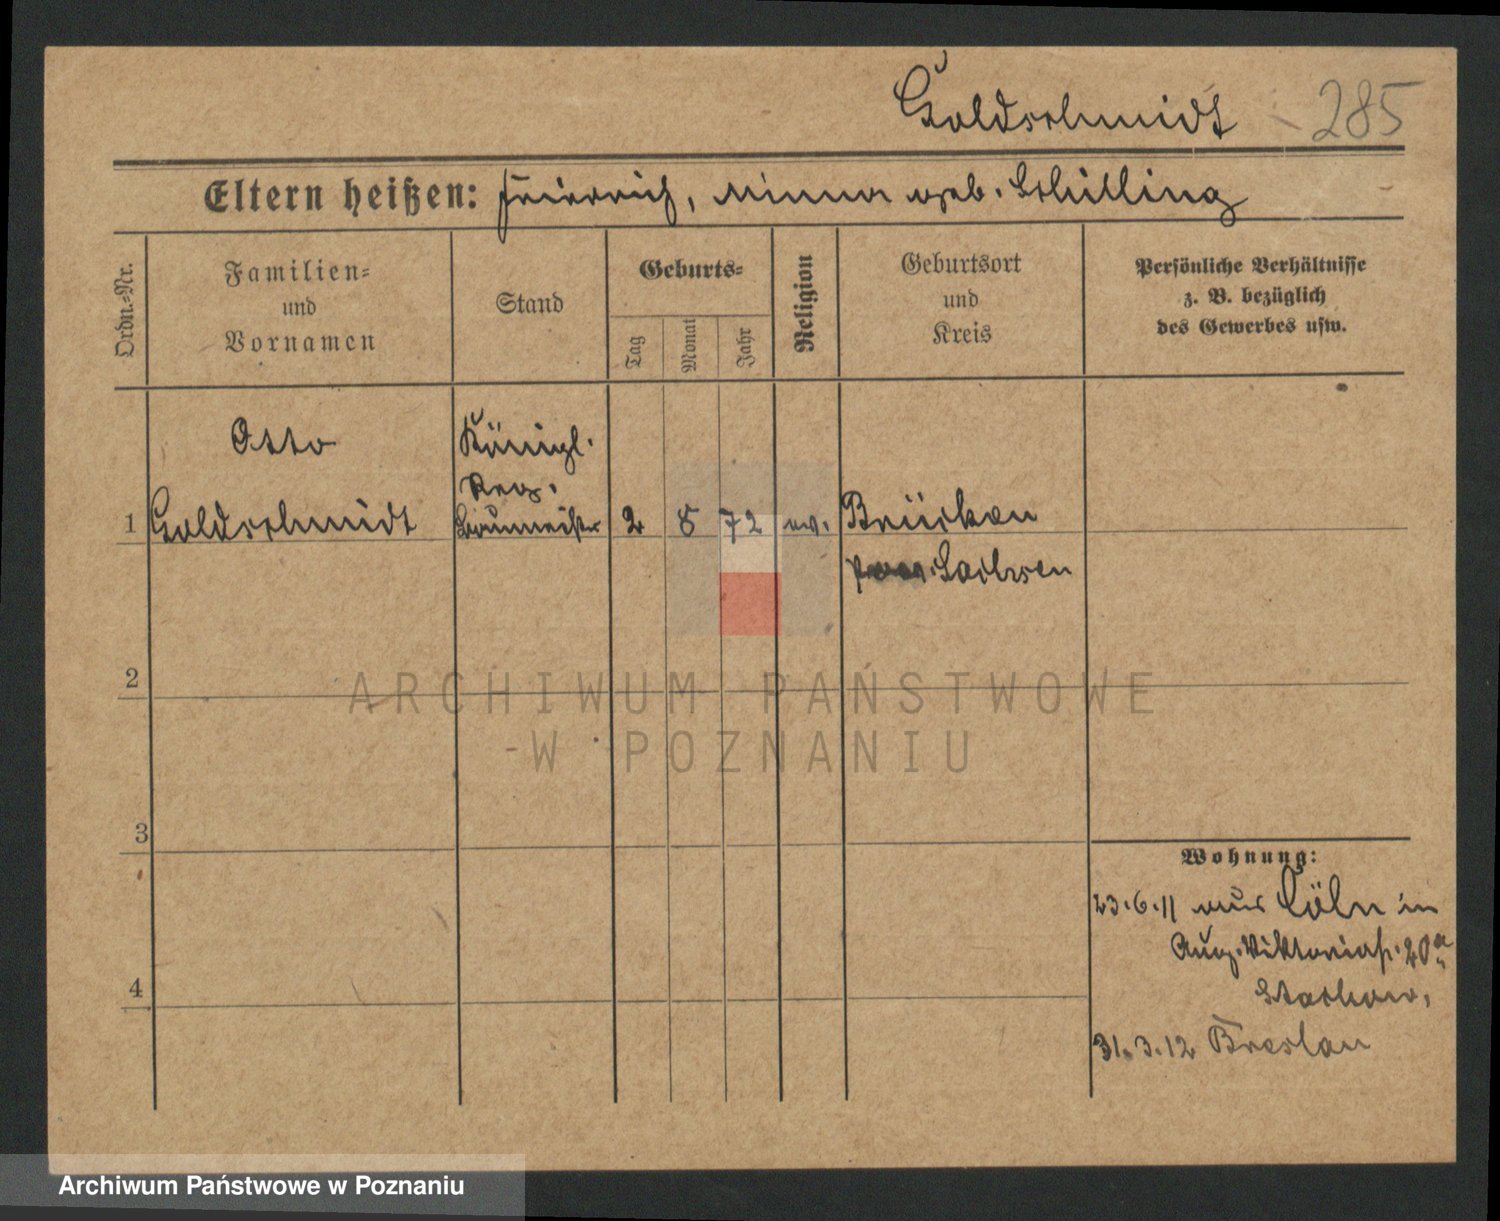 Goldschmidt 285
Eltern heißen: Friedrich, Minna geb. Schilling
Ordn.-Nr.
Familien-
und
Vornamen
Stand
Geburts-
Tag
Monat
Jahr
Religion
Geburtsort
und
Kreis
Persönliche Verhältnisse
z. B. bezüglich
des Gewerbes usw.
Otto
Königl.
Reg.
1 Goldschmidt Baumeister 2 8 72 ev. Brücken
Sachsen
2
ARCHIWUM PAŃSTWOWE
W POZNANIU
3
Wohnung:
23.6.11 aus Cöln in
Aug. Viktoriastr. 20a
4
31.3.12 Breslau
Archiwum Państwowe w Poznaniu